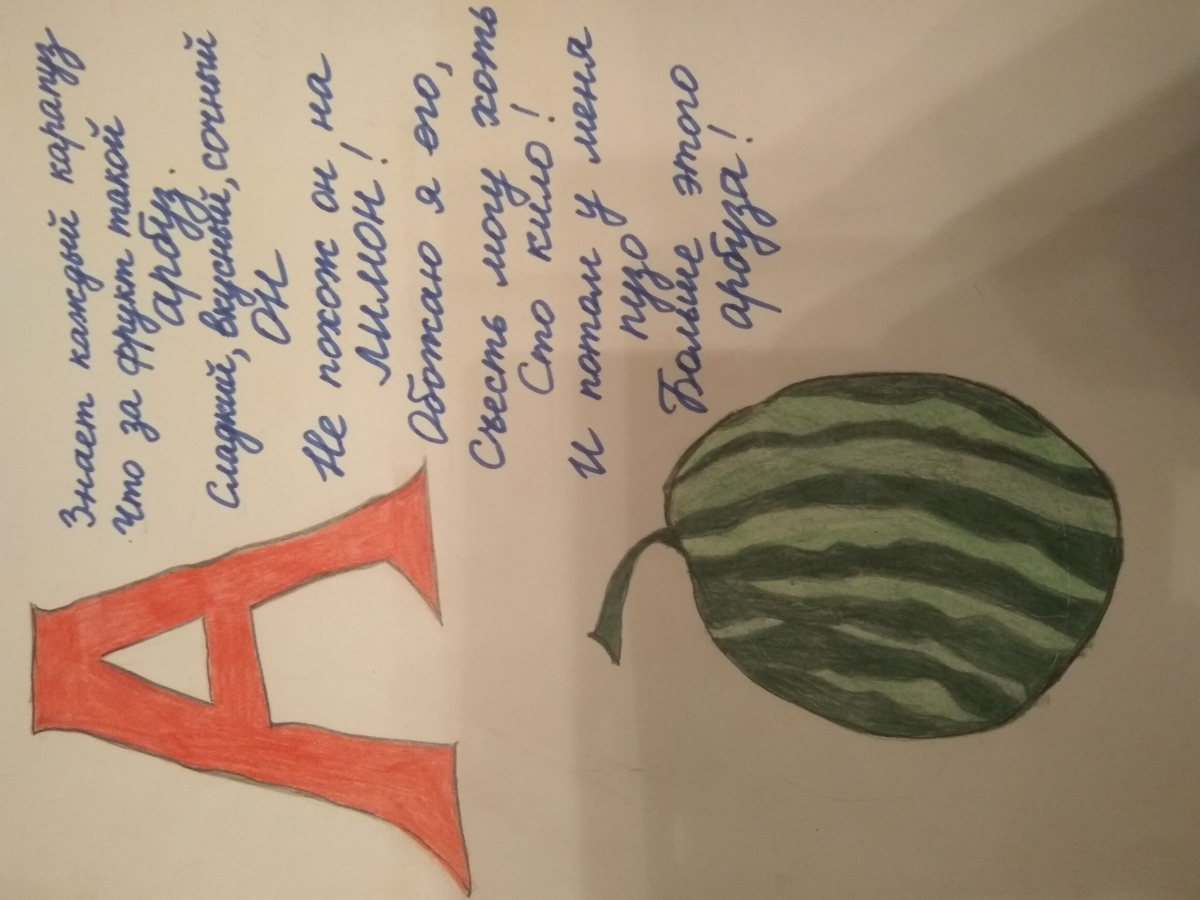 А
Знает каждый карапуз
Что за фрукт такой
арбуз.
Сладкий, вкусный, сочный
он
Не похож он на
Лимон!
Обожаю я его,
Съесть могу хоть
Сто кило!
И потом у меня
пузо
Больше этого
арбуза!